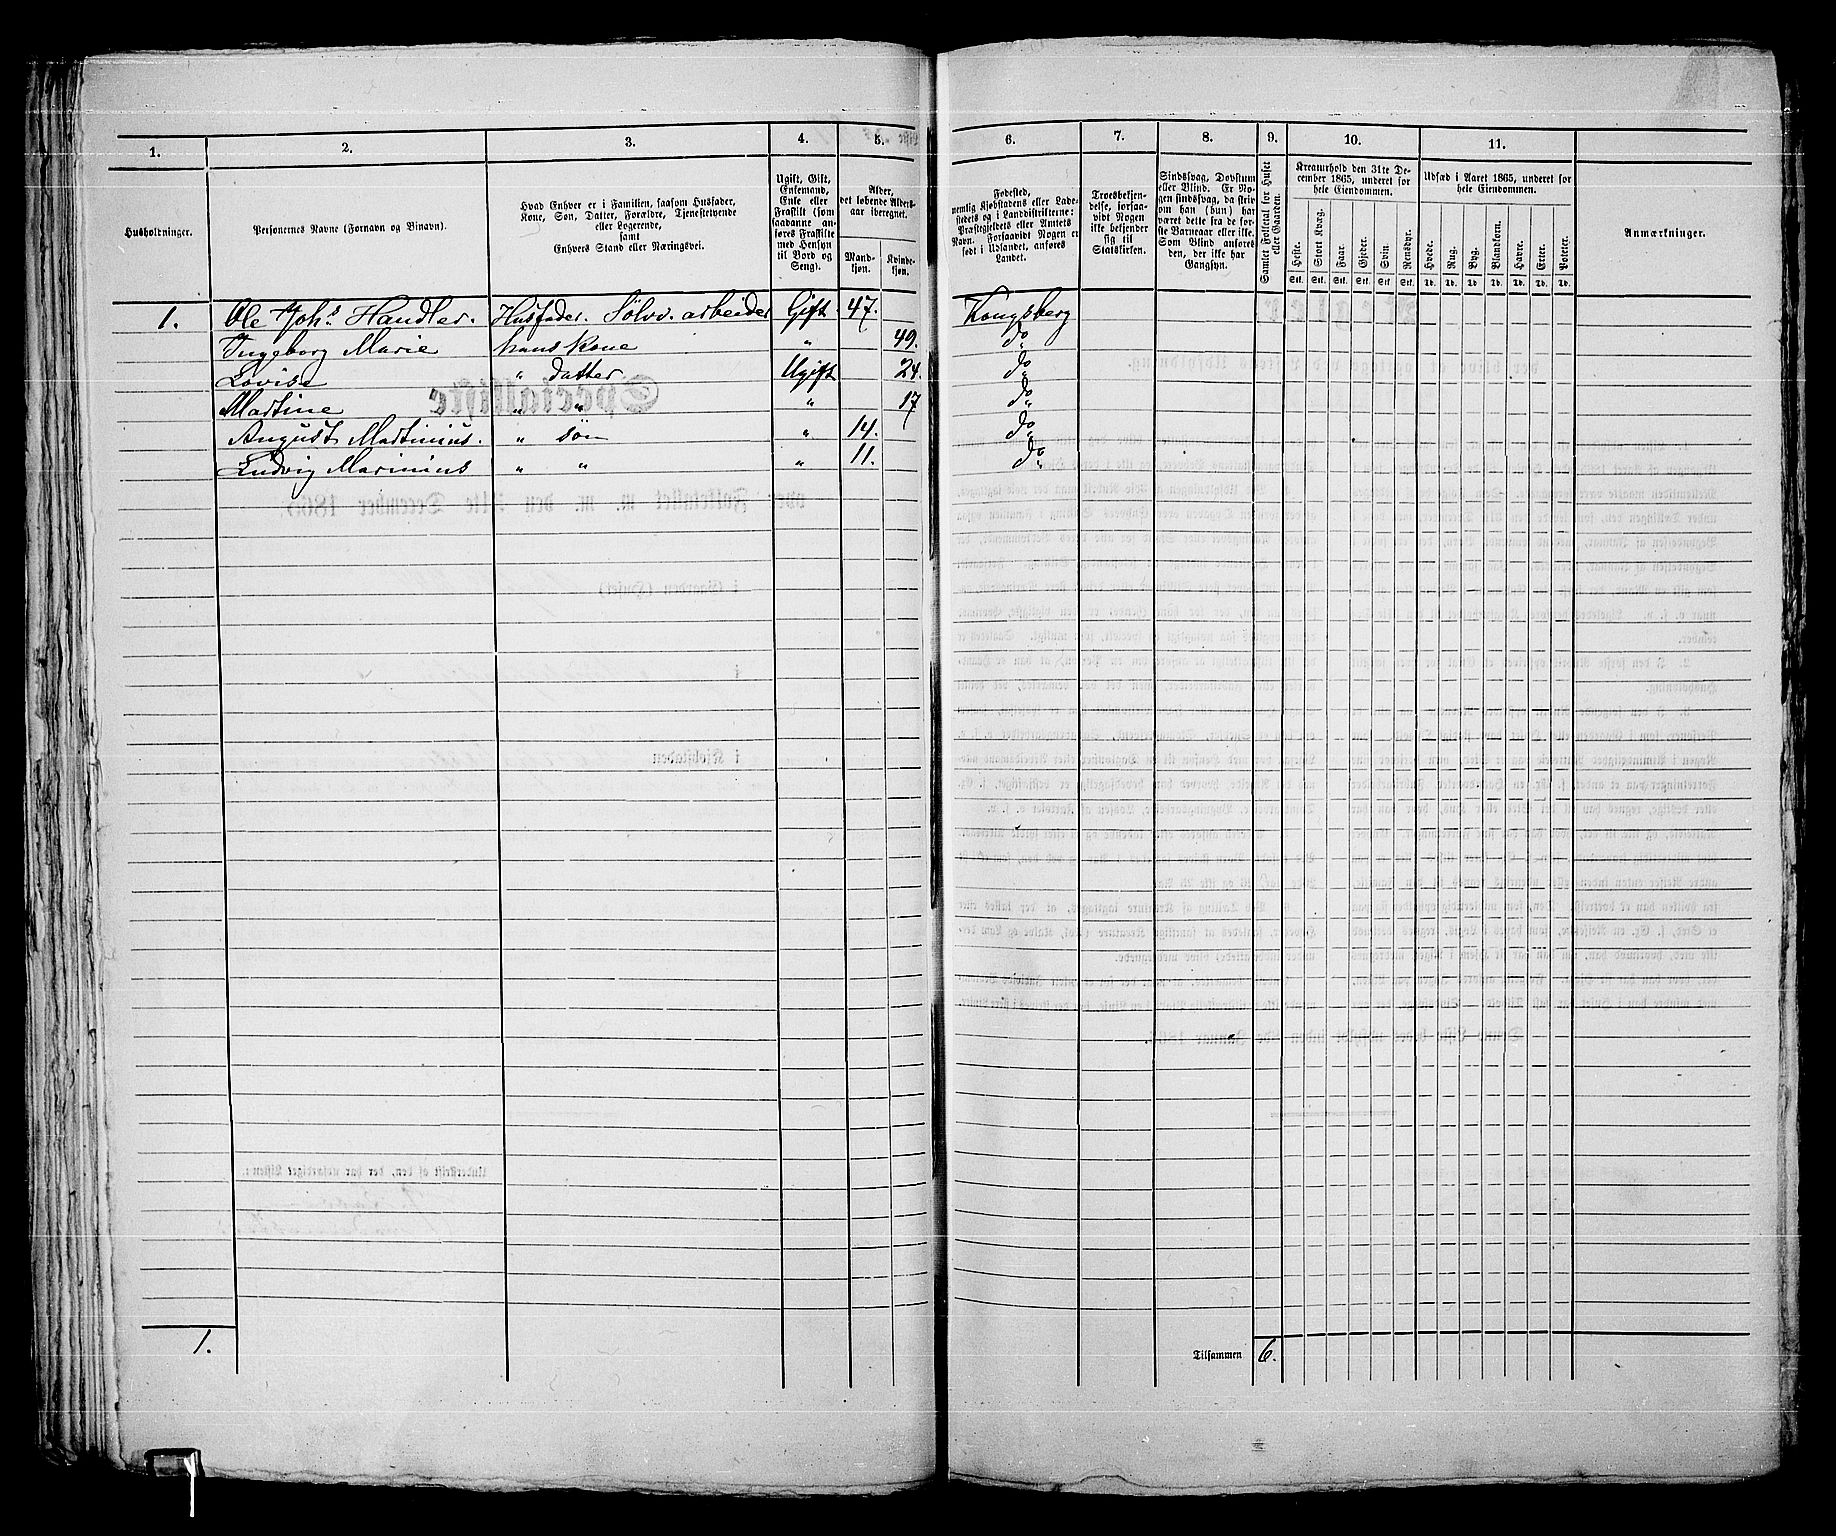 1. 2. 3. 4. 5. 6. 7. 8. 9. 10. 11.
Husholdninger.
Personernes Navne (Fornavn og Binavn).
Hvad Enhver er i Familien, saasom Husfader,
Kone, Søn, Datter, Forældre, Tjenestetyende
eller Logerende,
samt
Enhvers Stand eller Næringsvei.
Ugift, Gift,
Enkemand,
Enke eller
Fraskilt (som
saadanne an-
føres Fraskilte
med Hensyn
til Bord og
Seng).
Alder,
det løbende Alders-
aar iberegnet.
Mand-
kjøn.
Kvinde-
kjøn.
Fødested,
nemlig Kjøbstadens eller Lade-
stedets og i Landdistrikterne:
Præstegjeldets eller Amtets
Navn. Forsaavidt Nogen er
født i Udlandet, anføres
Landet.
Troesbekjen-
delse, forsaa-
vidt Nogen
ikke bekjender
sig til
Statskirken.
Sindssvag, Døvstum
eller Blind. Er No-
gen sindssvag, da skriv
om han (hun) har
været dette fra de før-
ste Barneaar eller ikke.
Som Blind anføres
den, der ikke har
Gangsyn.
Samlet Folketal for Huset
eller Gaarden.
Kreaturhold den 31te De-
cember 1865, underet for
hele Eiendommen.
Heste. Stort Kvæg. Faar. Gjeder. Svin. Rensdyr.
Stk. Stk. Stk. Stk. Stk. Stk.
Udsæd i Aaret 1865, underet for
hele Eiendommen.
Hvede. Rug. Byg. Blandkorn. Havre. Erter. Poteter.
Td. Td. Td. Td. Td. Td. Td.
Anmærkninger.
1. Ole Johs Handler. Husfader. Sølvv. arbeider Gift 47. Kongsberg
Ingeborg Marie hans Kone " 49. do
Lovise " datter Ugift 24. do
Martine " " " 17 do
August Martinius. " søn " 14. do
Ludvig Marinius " " " 11. do
1. Tilsammen 6.